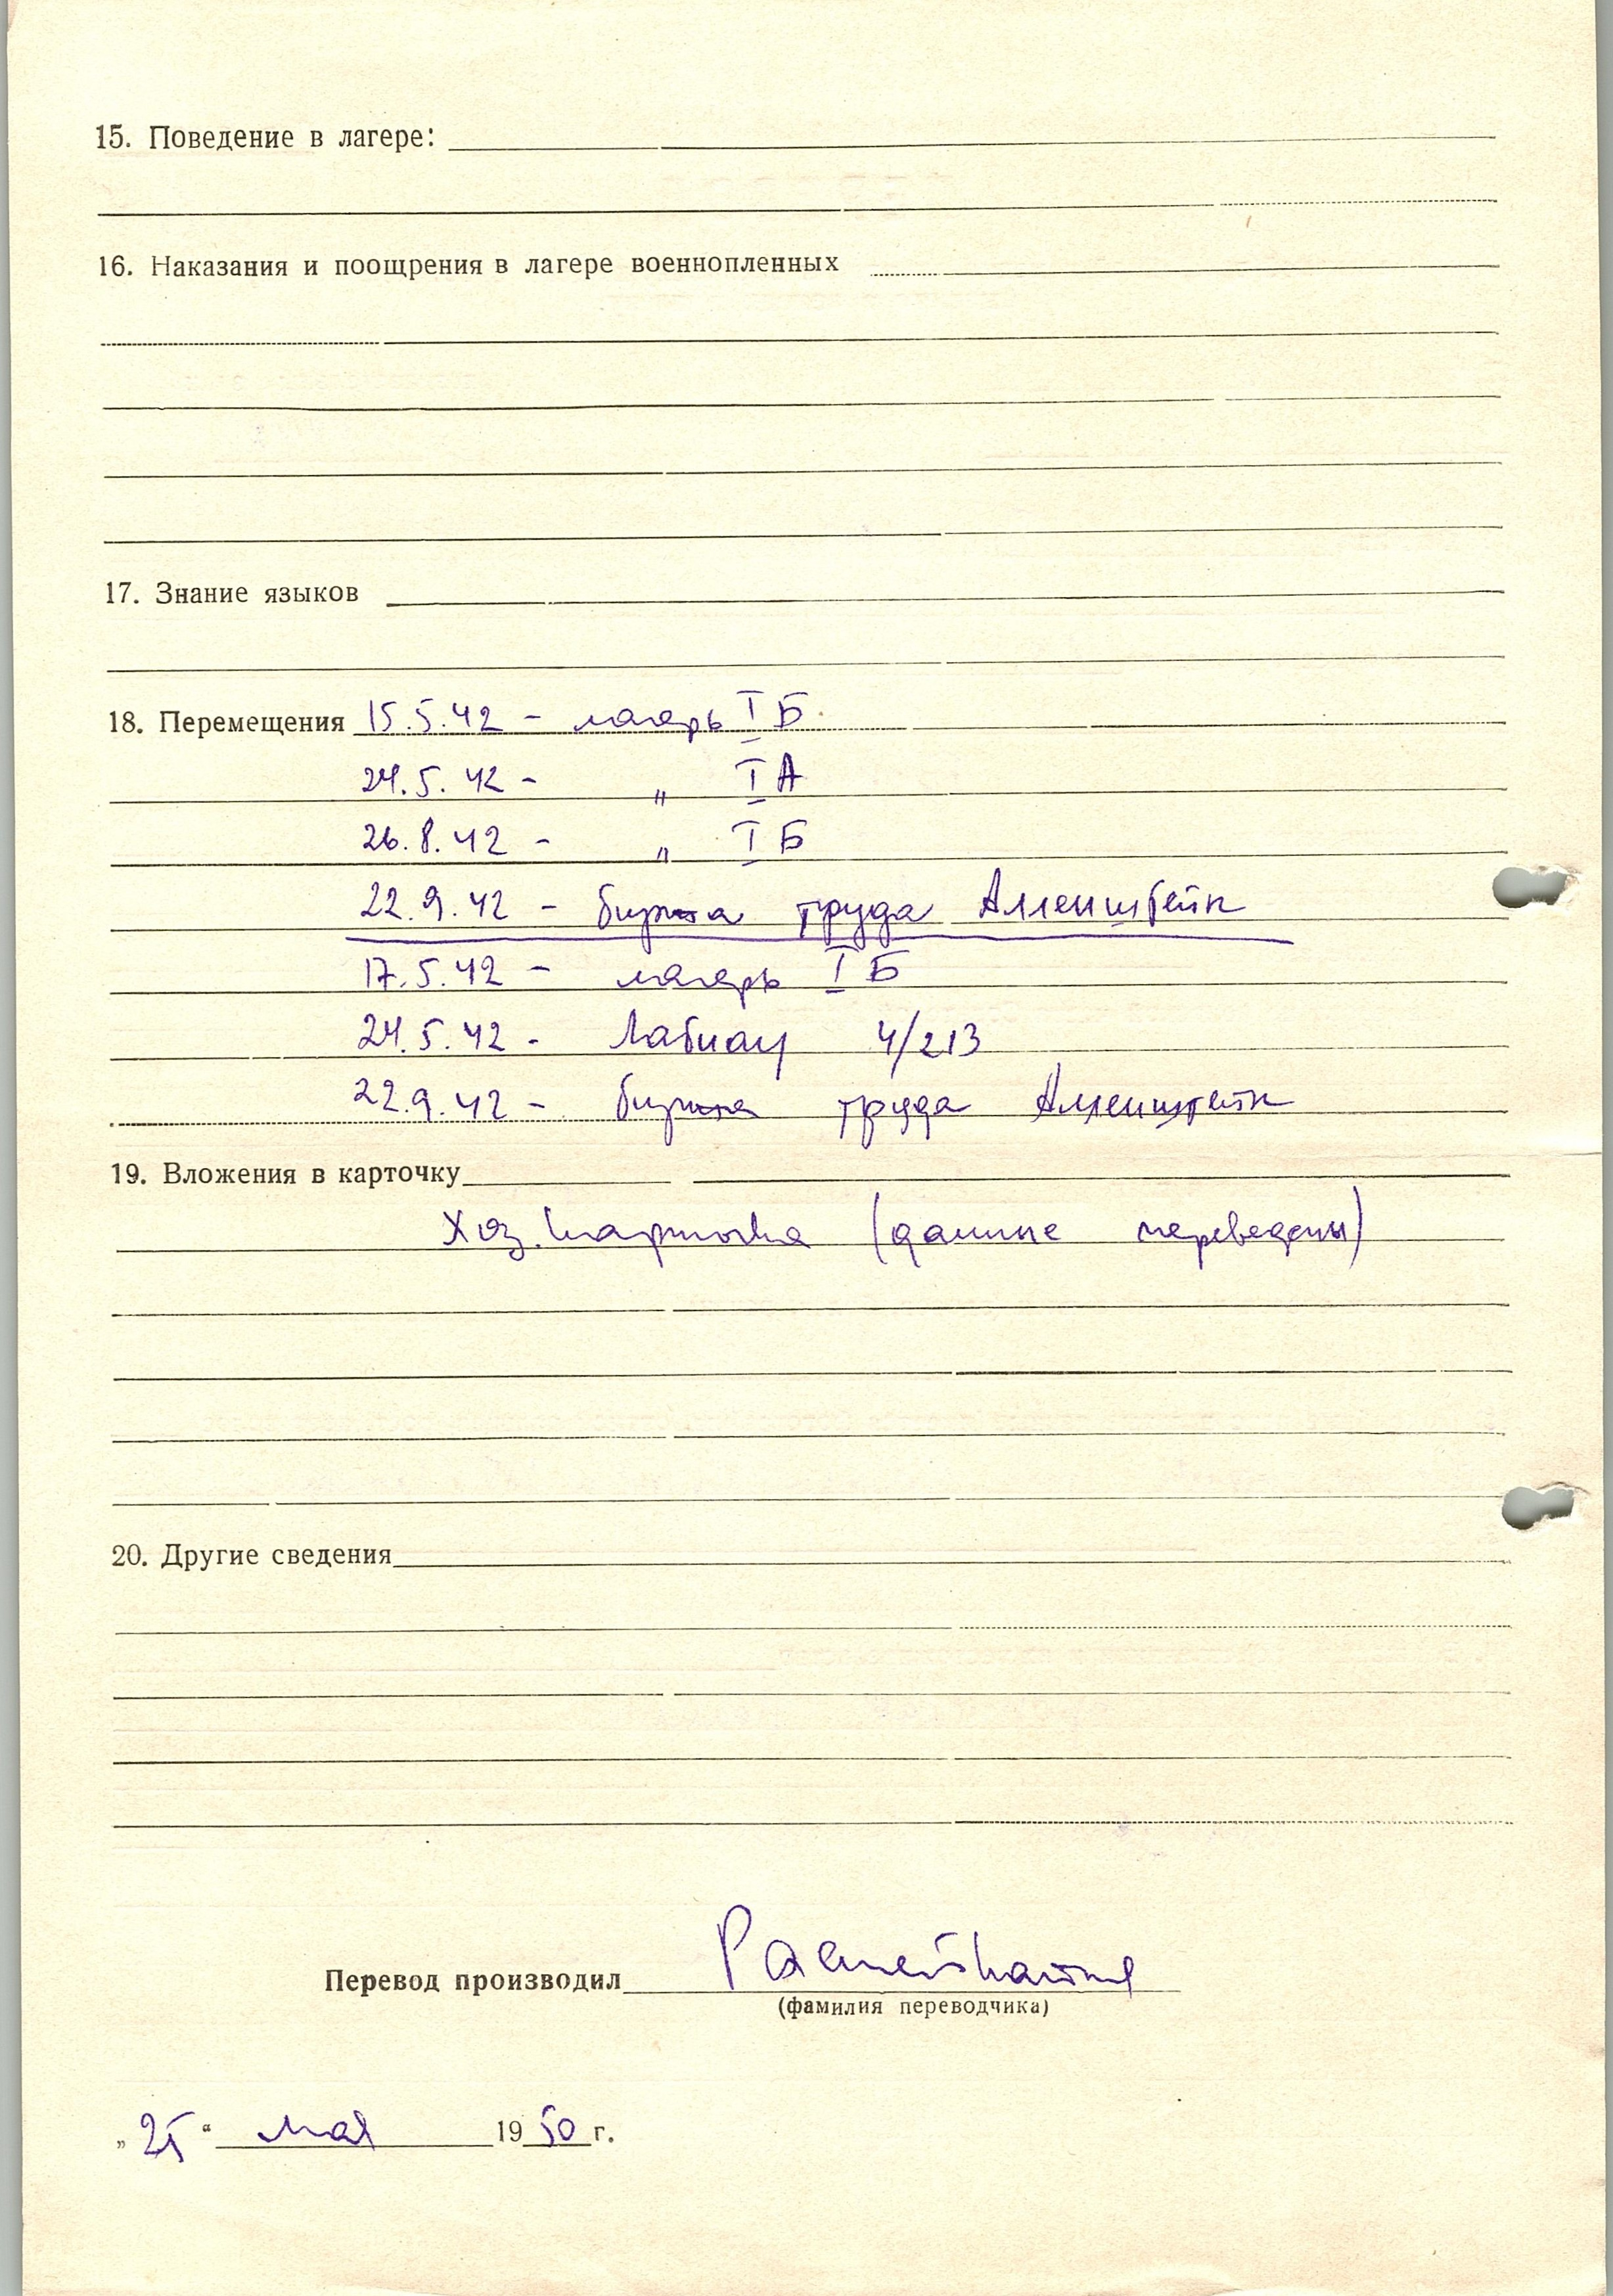 15. Поведение в лагере:
16. Наказания и поощрения в лагере военнопленных
17. Знание языков
18. Перемещения 15.5.42 - лагерь I Б.
24.5.42 - " I А
26.8.42 - " I Б
22.9.42 - биржа труда Алленштейн
17.5.42 - лагерь I Б
24.5.42 - Лабиау 4/213
22.9.42 - биржа труда Алленштейн
19. Вложения в карточку
Хоз. карточка (данные переведены)
20. Другие сведения
Перевод производил
(фамилия переводчика)
„25“ мая 1950 г.